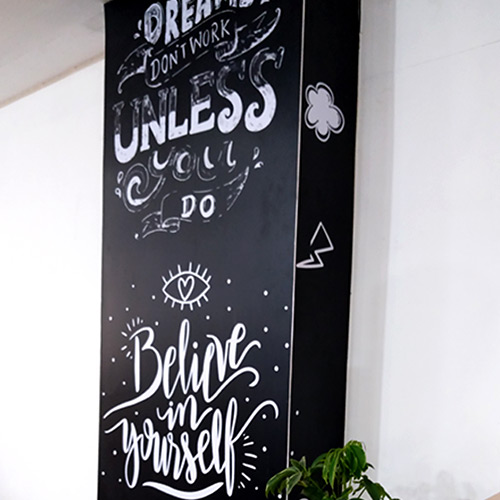 DREAMS
DON'T WORK
UNLESS
YOU
DO
Believe
in
yourself